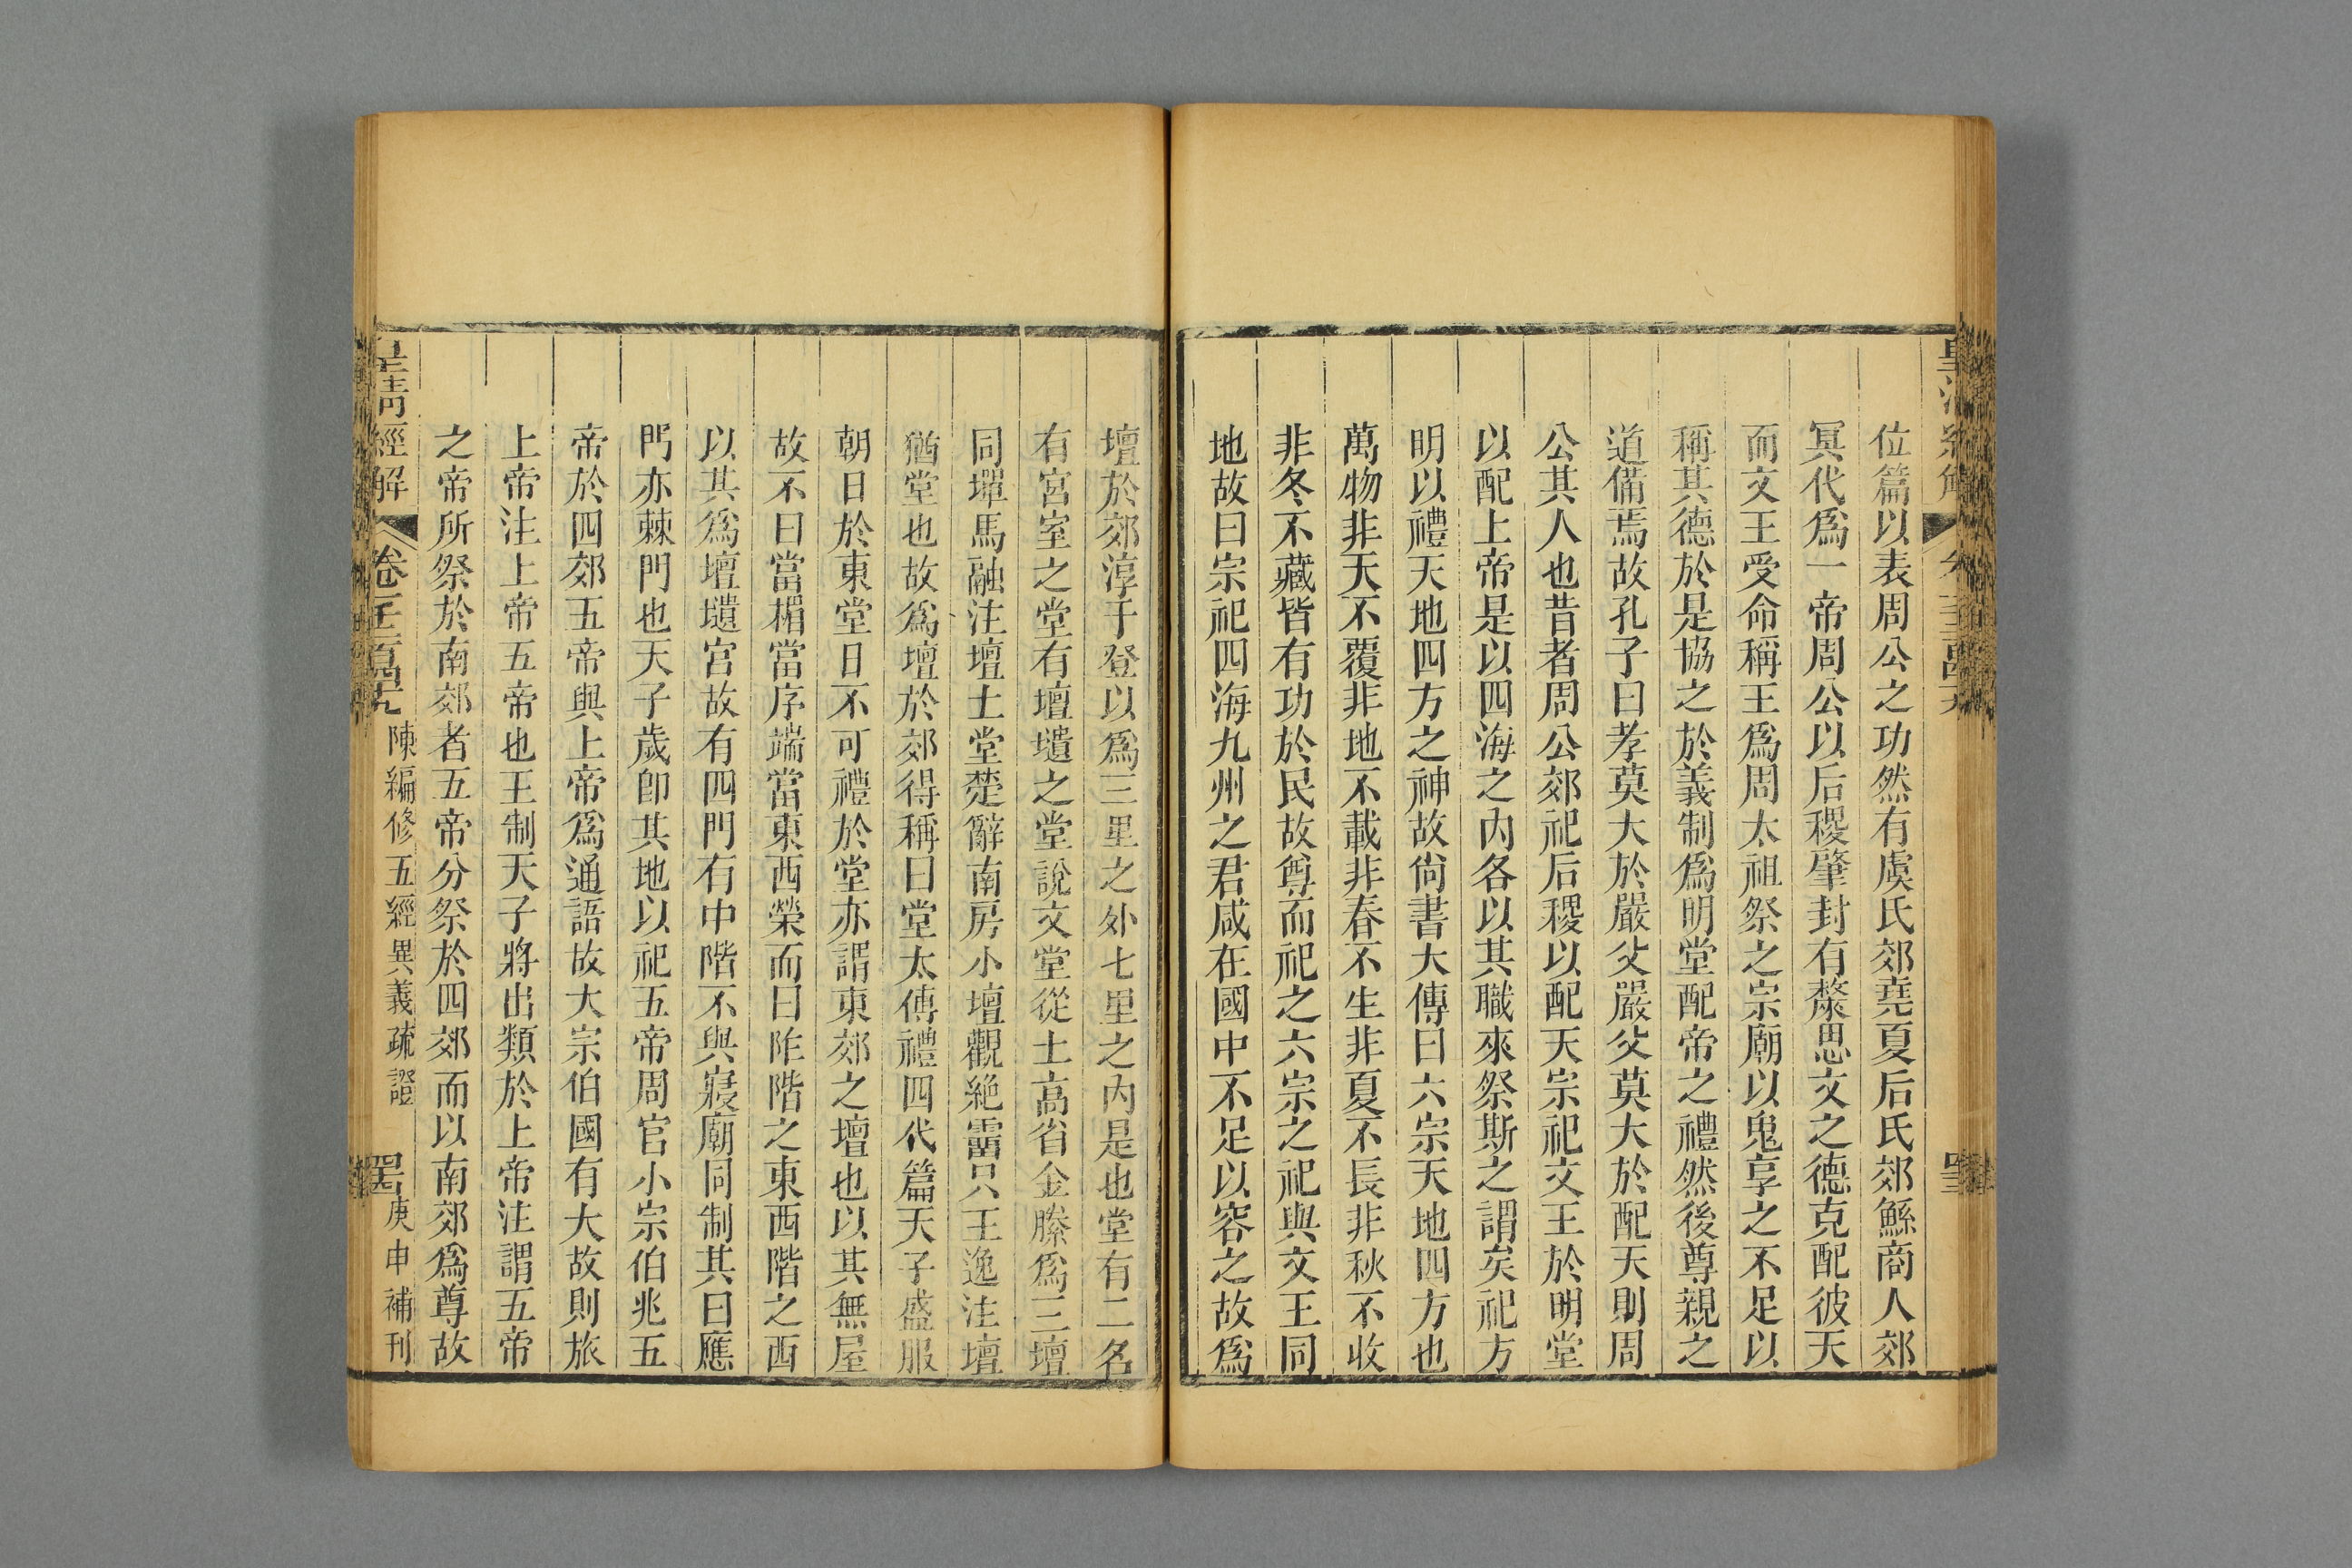 位篇以表周公之功然有虞氏郊堯夏后氏郊鯀商人郊
冥代爲一帝周公以后稷肇封有斄思文之德克配彼天
而文王受命稱王爲周太祖祭之宗廟以鬼享之不足以
稱其德於是協之於義制爲明堂配帝之禮然後尊親之
道備焉故孔子曰孝莫大於嚴父嚴父莫大於配天則周
公其人也昔者周公郊祀后稷以配天宗祀文王於明堂
以配上帝是以四海之內各以其職來祭斯之謂矣祀方
明以禮天地四方之神故尙書大傳曰六宗天地四方也
萬物非天不覆非地不載非春不生非夏不長非秋不收
非冬不藏皆有功於民故尊而祀之六宗之祀與文王同
地故曰宗祀四海九州之君咸在國中不足以容之故爲
壇於郊淳于登以爲三里之外七里之內是也堂有二名
有宮室之堂有壇壝之堂說文堂從土高省金縢爲三壇
同墠馬融注壇土堂楚辭南房小壇觀絕霤只王逸注壇
猶堂也故爲壇於郊得稱曰堂大傳禮四代篇天子盛服
朝日於東堂日不可禮於堂亦謂東郊之壇也以其無屋
故不曰當楣當序端當東西榮而曰阼階之東西階之西
以其爲壇壝宮故有四門有中階不與寢廟同制其曰應
門亦棘門也天子歲卽其地以祀五帝周官小宗伯兆五
帝於四郊五帝與上帝爲通語故大宗伯國有大故則旅
上帝注上帝五帝也王制天子將出類於上帝注謂五帝
之帝所祭於南郊者五帝分祭於四郊而以南郊爲尊故
皇清經解 卷 陳編修五經異義疏證 庚申補刊